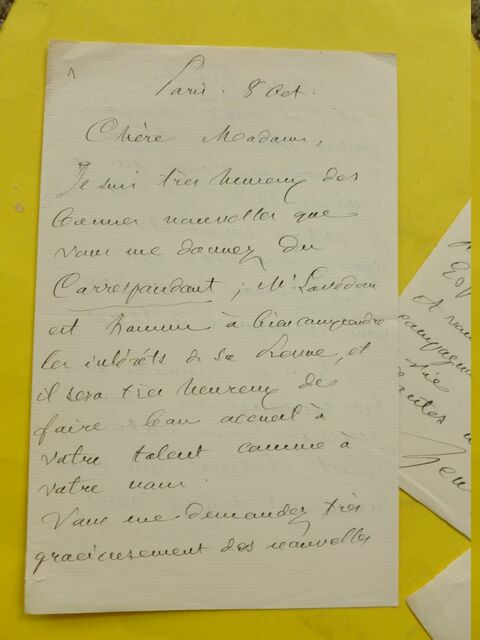 Paris. 8 Oct.
Chère Madame,
Je suis très heureux des
bonnes nouvelles que
vous me donnez du
Correspondant ; Mr Lavedan
est homme à bien comprendre
les intérêts de sa Revue, et
il sera très heureux de
faire beau accueil à
votre talent comme à
votre nom.
Vous me demandez très
gracieusement des nouvelles
et vous
campagne
vie